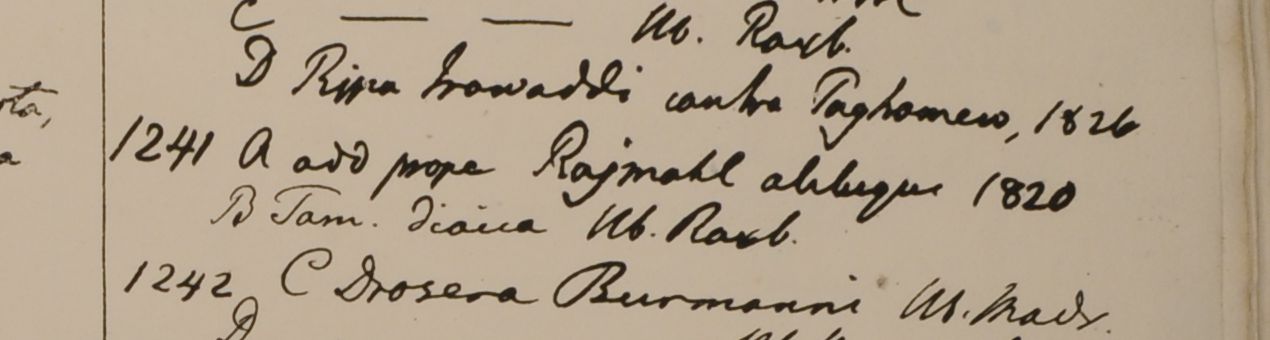 C — — Hb. Roxb.
D Ripa Irawaddi contra Taghomew, 1826
1241 A add prope Rajmahl aliloque 1820
B Tam. dioica Hb. Roxb.
1242 C Drosera Burmanni Hb. Madr.
D